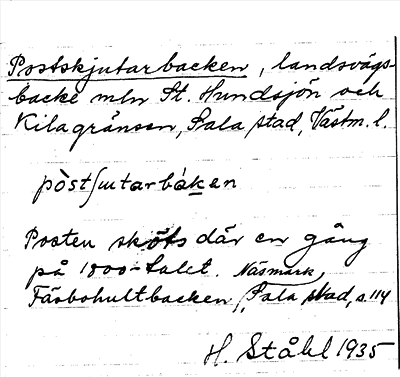 Postskjutarbacken, landsvägs-
backe mln St. Hundsjön och
Kilagränsen, Sala stad, Västm. l.
pòst∫utarbáken
Posten sköts där en gång
på 1800-talet. Näsmark,
Färbohultbacken, Sala stad, s. 114
H. Ståhl 1935